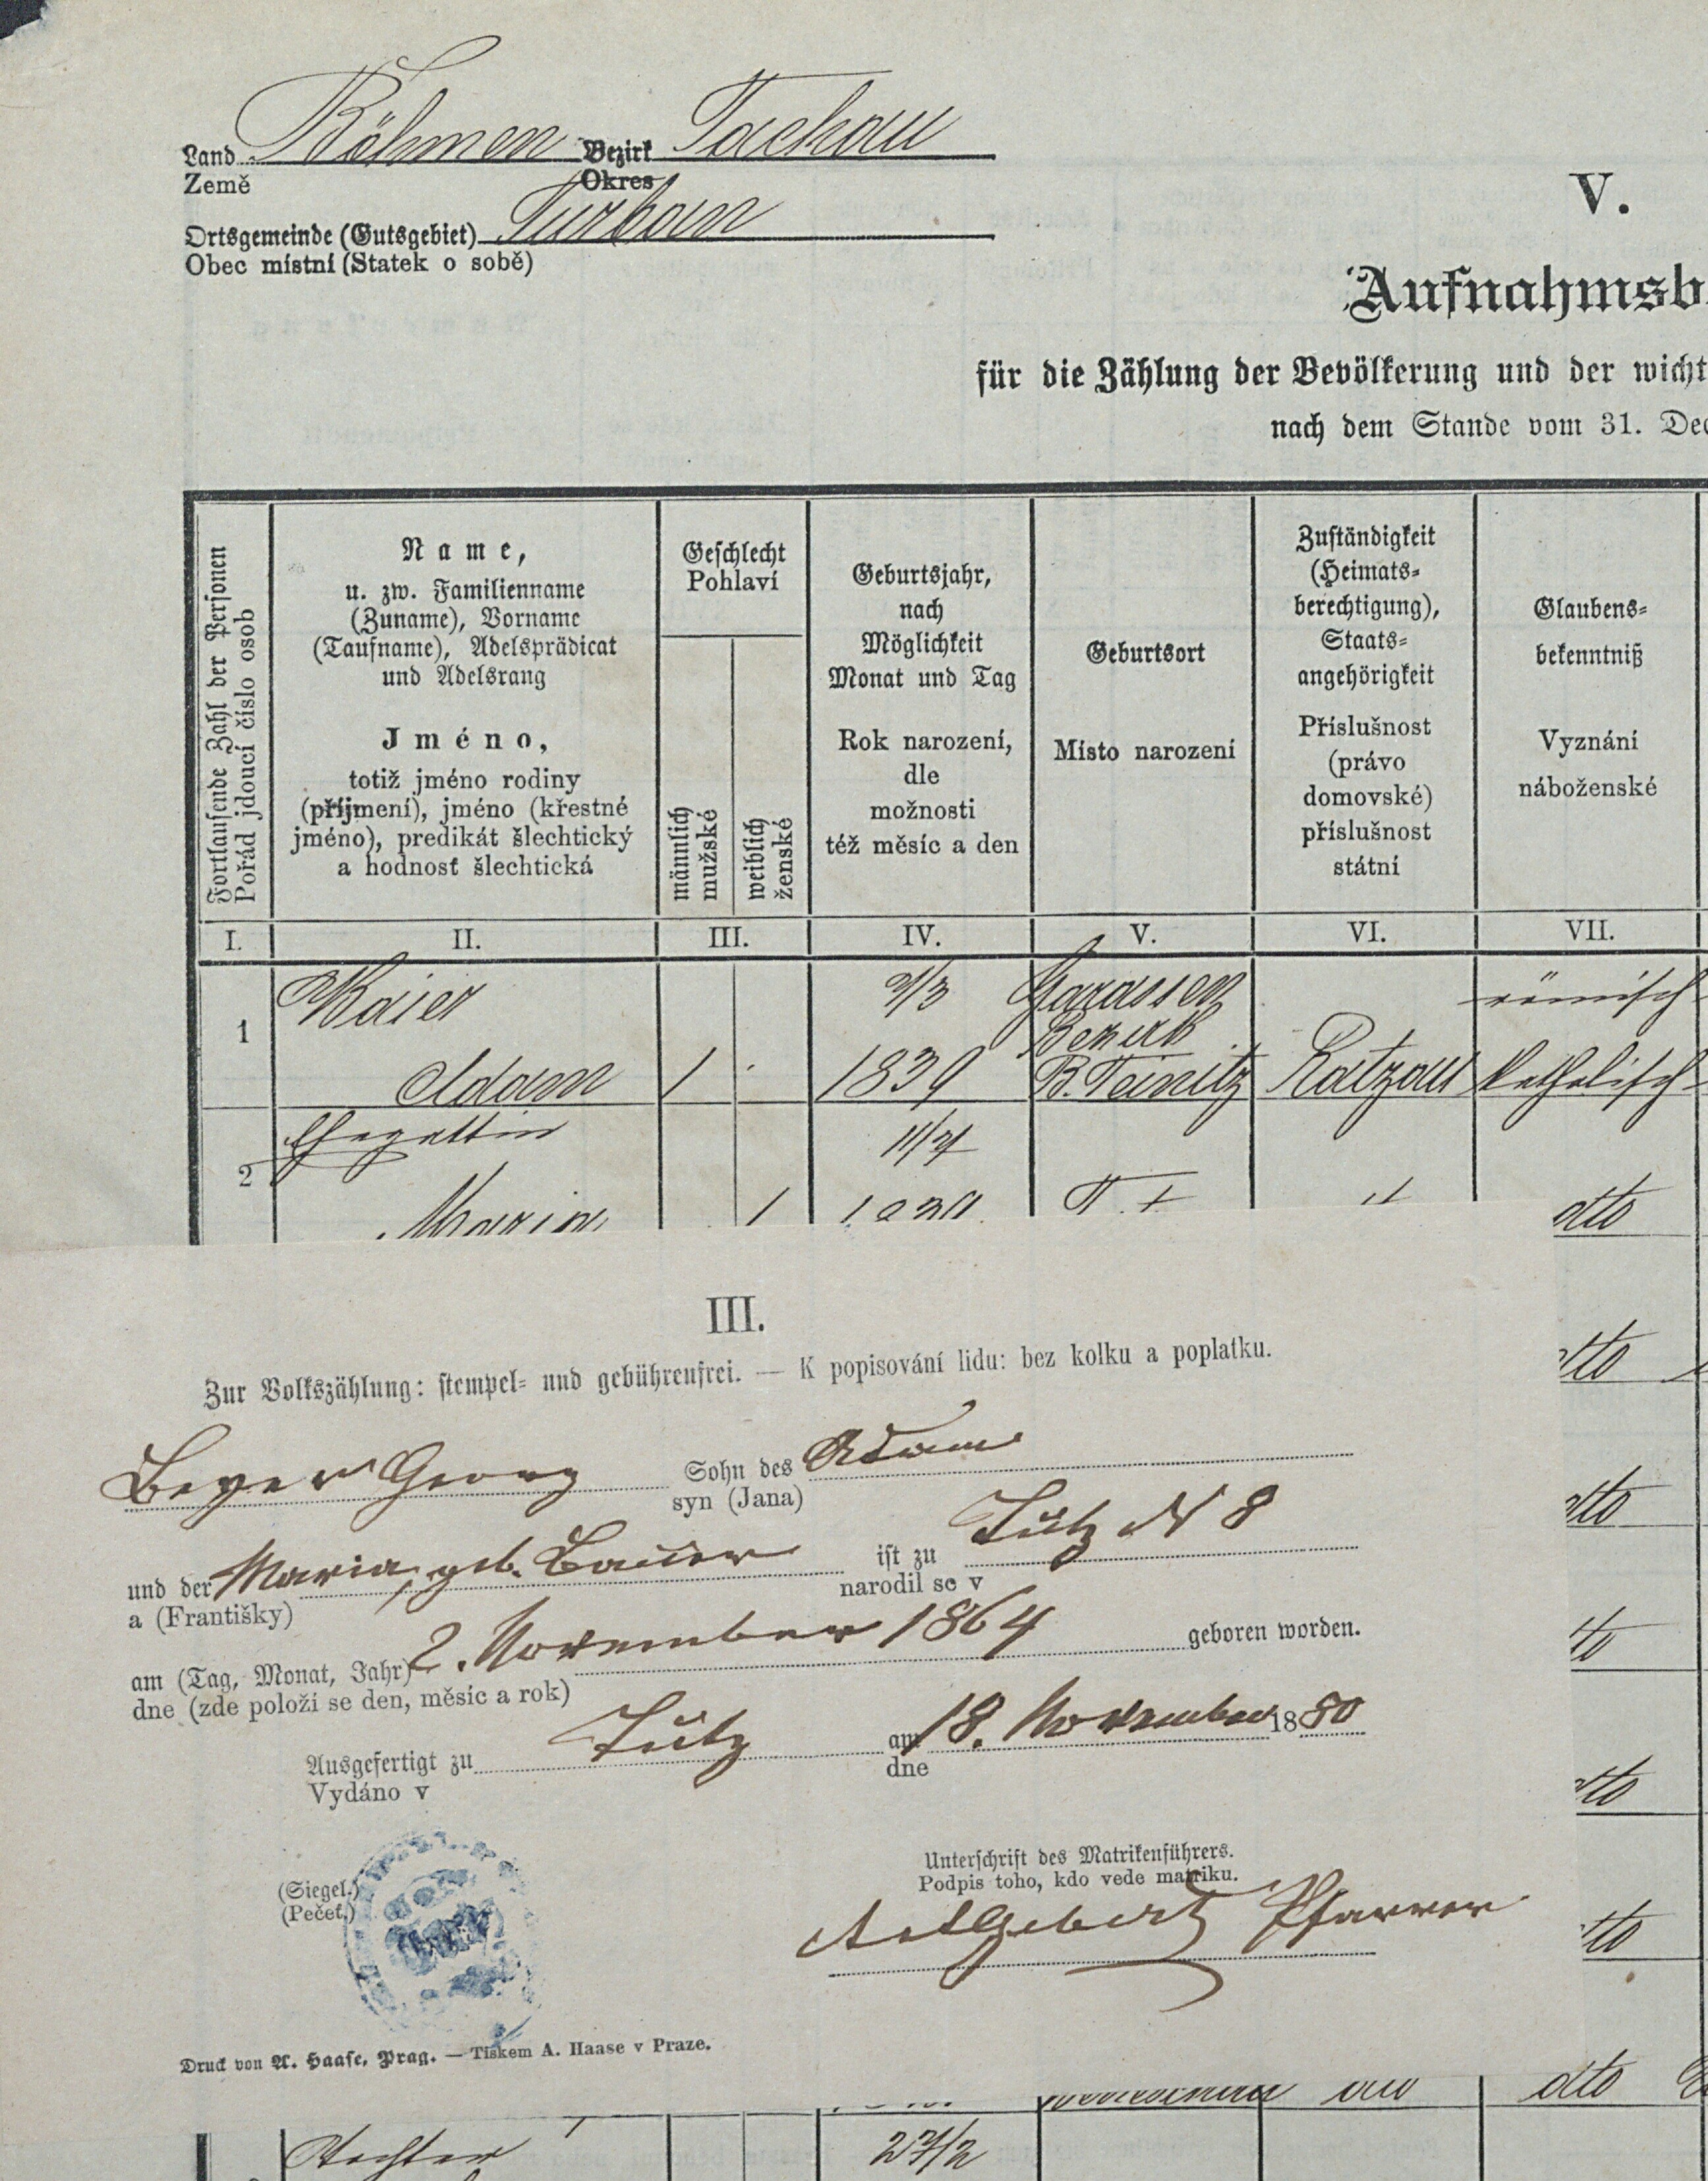 Land Böhmen Bezirk Tachau
Země Okres
Ortsgemeinde (Gutsgebiet) Turban
Obec místní (Statek o sobě)
V.
Aufnahmsb
für die Zählung der Bevölkerung und der wicht
nach dem Stande vom 31. Dec
Fortlaufende Zahl der Personen
Pořád jdoucí číslo osob
Name,
u. zw. Familienname
(Zuname), Vorname
(Taufname), Adelsprädicat
und Adelsrang
Jméno,
totiž jméno rodiny
(příjmení), jméno (křestné
jméno), predikát šlechtický
a hodnosť šlechtická
Geschlecht
Pohlaví
männlich
mužské
weiblich
ženské
Geburtsjahr,
nach
Möglichkeit
Monat und Tag
Rok narození,
dle
možnosti
též měsíc a den
Geburtsort
Místo narození
Zuständigkeit
(Heimats-
berechtigung),
Staats-
angehörigkeit
Příslušnost
(právo
domovské)
příslušnost
státní
Glaubens-
bekenntniß
Vyznání
náboženské
I. II. III. IV. V. VI. VII.
Baier römisch
Bezirk
1 Adam 1 1839 B. Teinitz Ratzau katholisch
Ehegattin
2 Maria 1 dto
dto
dto
dto
dto
dto
III.
Zur Volkszählung: stempel- und gebührenfrei. — K popisování lidu: bez kolku a poplatku.
Beyer Georg Sohn des Adam
syn (Jana)
und der Maria, geb. Bauer ist zu Tütz N 8
a (Františky) narodil se v
am (Tag, Monat, Jahr) 2. November 1864 geboren worden.
dne (zde položí se den, měsíc a rok)
Ausgefertigt zu Tütz am 18. November 1880
Vydáno v dne
(Siegel.)
(Pečeť.)
Unterschrift des Matrikenführers.
Podpis toho, kdo vede matriku.
Pfarrer
Druck von A. Haase, Prag. — Tiskem A. Haase v Praze.
dto dto
Tochter 27/2